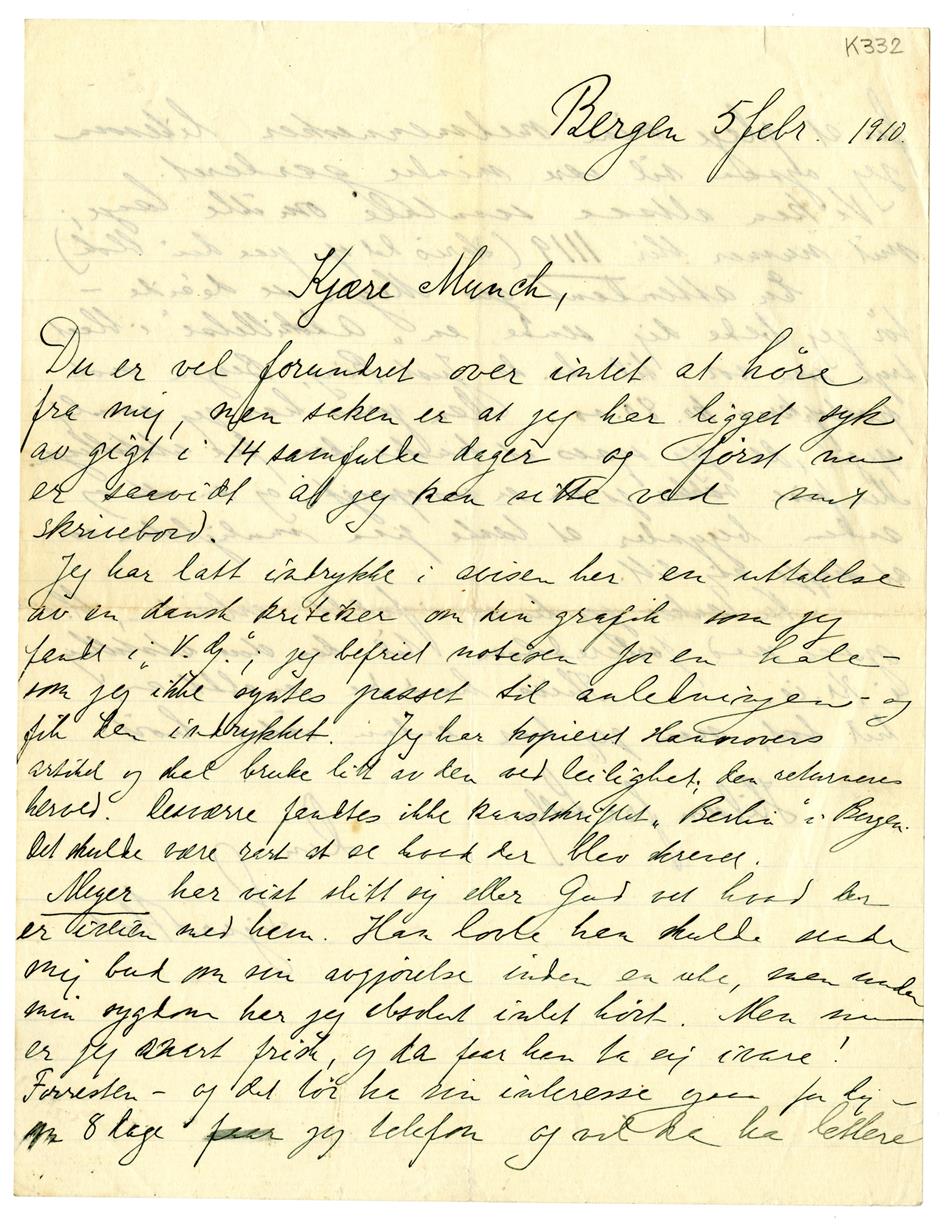 K332
Bergen 5 febr. 1910.
Kjære Munch,
Du er vel forundret over intet at höre
fra mig, men saken er at jeg har ligget syk
av gigt i 14 samfulde dager og först nu
er saavidt at jeg kan sitte ved mit
skrivebord.
Jeg har latt indrykke i avisen her en uttalelse
av en dansk kritiker om din grafik som jeg
fandt i "V. G."; jeg befriet notisen for en hale –
som jeg ikke syntes passet til anledningen – og
fik den indrykket. Jeg har kopieret Hannovers
artikel og skal bruke litt av den ved leilighet; den returneres
herved. Desværre fandtes ikke kunstskriftet "Berlin" i Bergen.
Det skulde være rart at se hvad der blev skrevet.
Meyer har vist slitt sig eller Gud vet hvad der
er iveien med ham. Han lovte han skulde sende
mig bud om sin avgjörelse inden en uke, men under
min sygdom har jeg absolut intet hört. Men nu
er jeg snart frisk, og da faar han ta sig ivare!
Forresten – og det tör ha sin interesse ogsaa for dig –
om 8 dage faar jeg telefon og vil da ha lettere